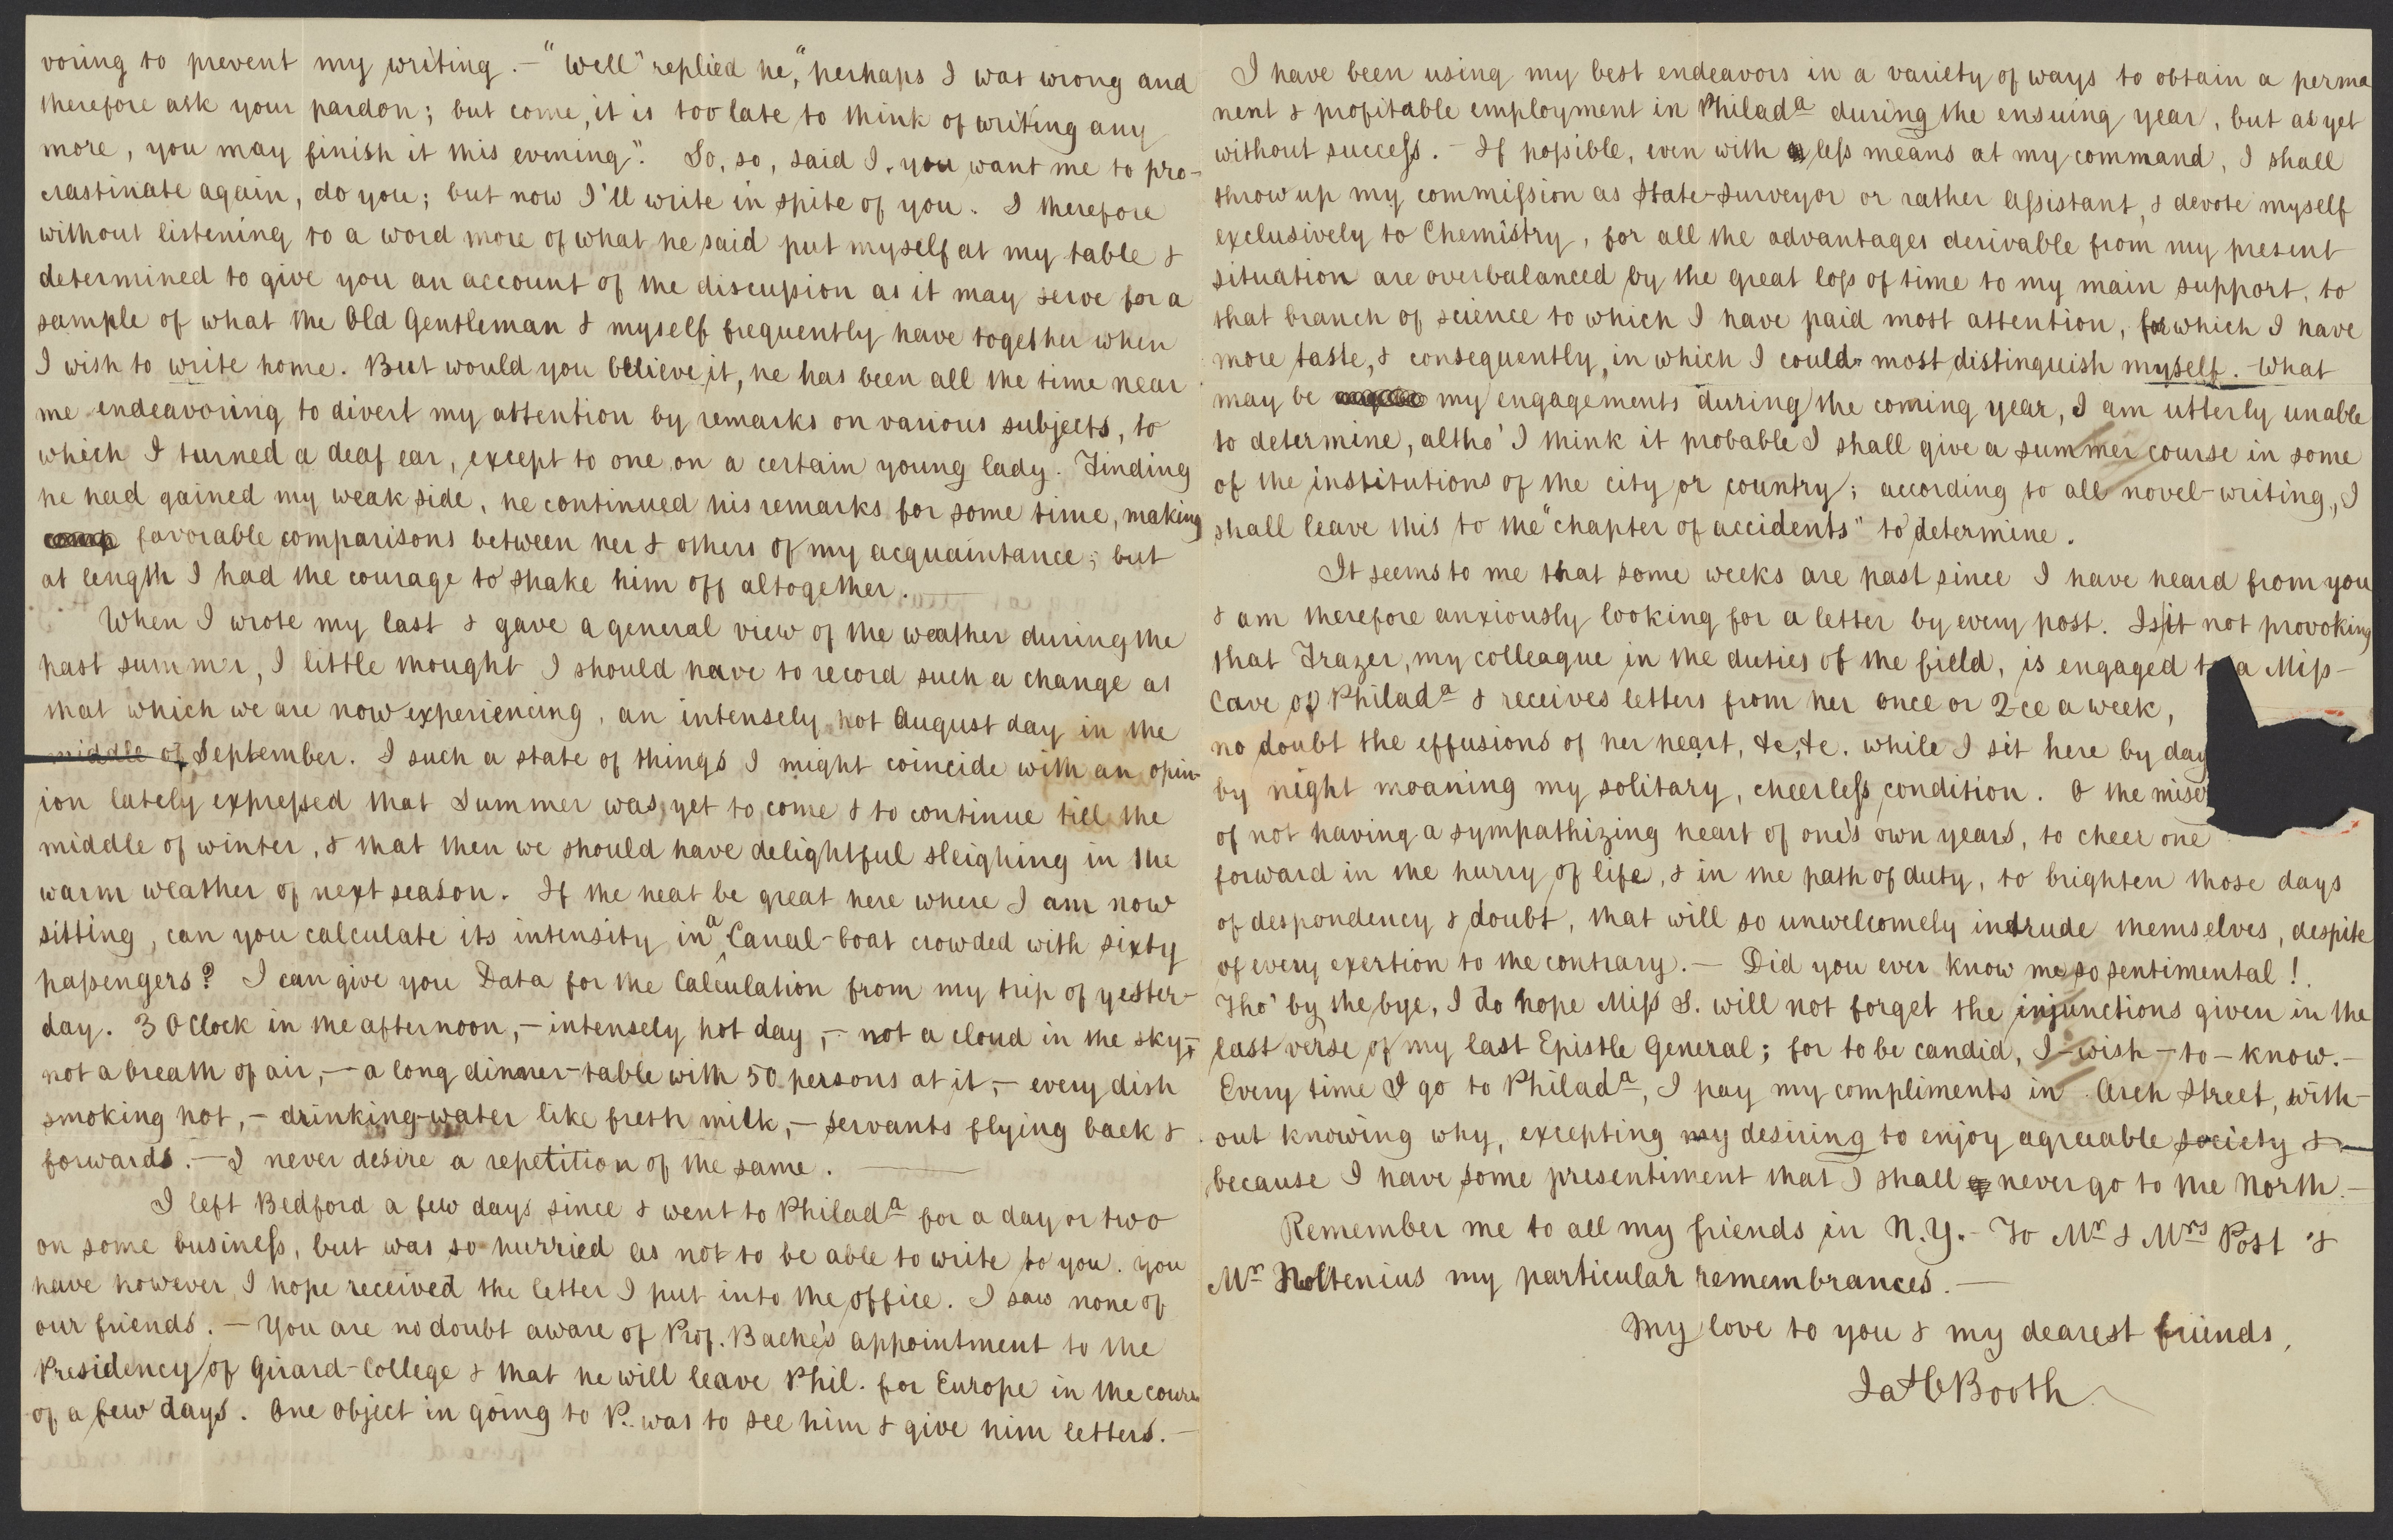 voring to prevent my writing. — "Well" replied he, "perhaps I was wrong and
therefore ask your pardon; but come, it is too late to think of writing any
more, you may finish it this evening". So, so, said I, you want me to pro-
crastinate again, do you; but now I'll write in spite of you. I therefore
without listening to a word more of what he said put myself at my table &
determined to give you an account of the discussion as it may serve for a
sample of what the Old Gentleman & myself frequently have together when
I wish to write home. But would you believe it, he has been all the time near
me endeavoring to divert my attention by remarks on various subjects, to
which I turned a deaf ear, except to one on a certain young lady. Finding
he had gained my weak side, he continued his remarks for some time, making
favorable comparisons between her & others of my acquaintance; but
at length I had the courage to shake him off altogether. —
When I wrote my last & gave a general view of the weather during the
past summer, I little thought I should have to record such a change as
that which we are now experiencing, an intensely hot August day in the
middle of September. I such a state of things I might coincide with an opin-
ion lately expressed that Summer was yet to come & to continue till the
middle of winter, & that then we should have delightful sleighing in the
warm weather of next season. If the heat be great here where I am now
sitting, can you calculate its intensity in a Canal-boat crowded with sixty
passengers? I can give you Data for the Calculation from my trip of yester-
day. 3 OClock in the afternoon, — intensely hot day, — not a cloud in the sky, —
not a breath of air, — a long dinner-table with 50 persons at it, — every dish
smoking hot, — drinking-water like fresh milk, — servants flying back &
forwards. — I never desire a repetition of the same. —
I left Bedford a few days since & went to Philada for a day or two
on some business, but was so hurried as not to be able to write to you. You
have however I hope received the letter I put into the office. I saw none of
our friends. — You are no doubt aware of Prof. Bache's appointment to the
Presidency of Girard-College & that he will leave Phil. for Europe in the course
of a few days. One object in going to P. was to see him & give him letters. —
I have been using my best endeavors in a variety of ways to obtain a perma
nent & profitable employment in Philada during the ensuing year, but as yet
without success. — If possible, even with less means at my command, I shall
throw up my commission as State-Surveyor or rather Assistant, & devote myself
exclusively to Chemistry, for all the advantages derivable from my present
situation are overbalanced by the great loss of time to my main support, to
that branch of science to which I have paid most attention, for which I have
more taste, & consequently, in which I could most distinguish myself. — What
may be my engagements during the coming year, I am utterly unable
to determine, altho' I think it probable I shall give a summer course in some
of the institutions of the city or country; according to all novel-writing, I
shall leave this to the "chapter of accidents" to determine.
It seems to me that some weeks are past since I have heard from you
& am therefore anxiously looking for a letter by every post. Is it not provoking
that Frazer, my colleague in the duties of the field, is engaged to a Miss —
Cave of Philada & receives letters from her once or 2-ce a week,
no doubt the effusions of her heart, &c, &c. while I sit here by day
by night moaning my solitary, cheerless condition. O the miser
of not having a sympathizing heart of one's own years, to cheer one
forward in the hurry of life, & in the path of duty, to brighten those days
of despondency & doubt, that will so unwelcomely intrude themselves, despite
of every exertion to the contrary. — Did you ever know me so sentimental!
Tho' by the bye, I do hope Miss S. will not forget the injunctions given in the
last verse of my last Epistle General; for to be candid, I — wish — to — know. —
Every time I go to Philada, I pay my compliments in Arch Street, with-
out knowing why, excepting my desiring to enjoy agreeable society & —
because I have some presentiment that I shall never go to the North. —
Remember me to all my friends in N.Y. — To Mr & Mrs Post &
Mr Noltenius my particular remembrances. —
My love to you & my dearest friends,
Jas C Booth